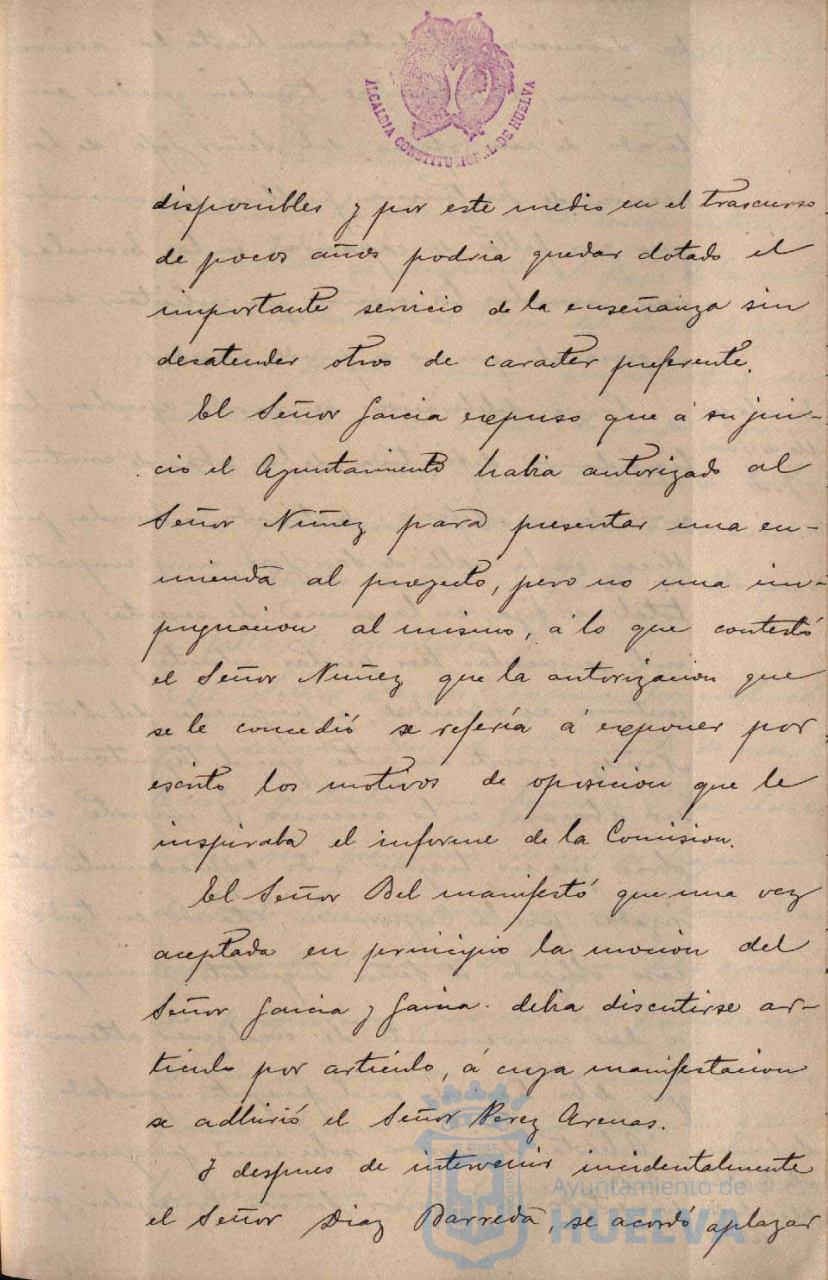 ALCALDIA CONSTITUCIONAL DE HUELVA
disponibles y por este medio en el trascurso
de pocos años podria quedar dotado el
importante servicio de la enseñanza sin
desatender otros de caracter preferente.
El Señor Garcia expuso que á su jui-
cio el Ayuntamiento habia autorizado al
Señor Nuñez para presentar una en-
mienda al proyecto, pero no una im-
pugnacion al mismo, á lo que contestó
el Señor Nuñez que la autorizacion que
se le concedió se refería á exponer por
escrito los motivos de oposicion que le
inspiraba el informe de la Comision.
El Señor Bel manifestó que una vez
aceptada en principio la mocion del
Señor Garcia y Garcia. debia discutirse ar-
ticulo por articulo, á cuya manifestacion
se adhirió el Señor Perez Arenas.
Y despues de intervenir incidentalmente
el Señor Diaz Barreda, se acordó aplazar
Ayuntamiento de
HUELVA